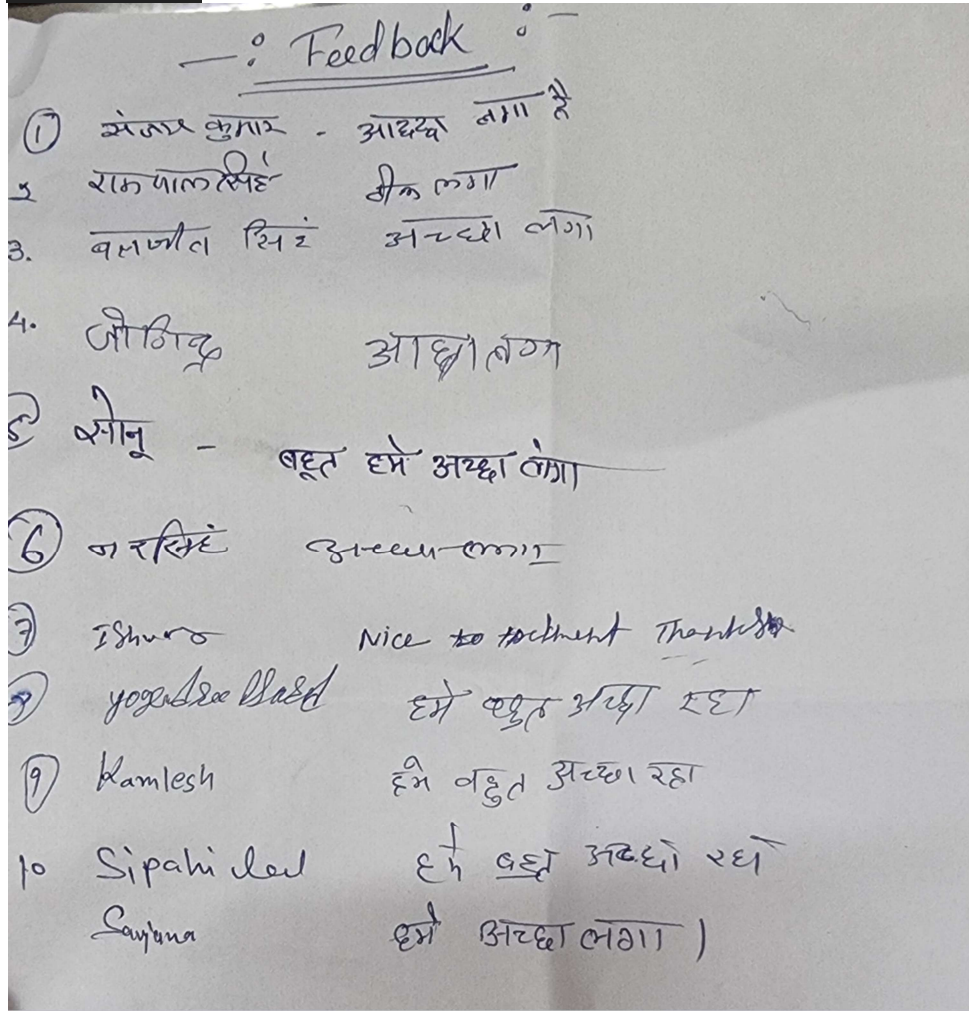 -: Feedback :-
① संजय कुमार - आच्छा लगा है
2 रामपाल सिंह ठीक लगा
3. बलजीत सिंह अच्छा लगा
4. जोगिन्द्र आछा लगा
5 सोनू - बहूत हमे अच्छा लगा
⑥ नरसिंह अच्छा लगा
⑦ Nice to Thanks
⑧ हमे बहुत अच्छा रहा
⑨ Kamlesh हमे बहुत अच्छा रहा
10 Sipahi Lal हमे बहुत अच्छा रहा
Sanjana हमे अच्छा लगा।